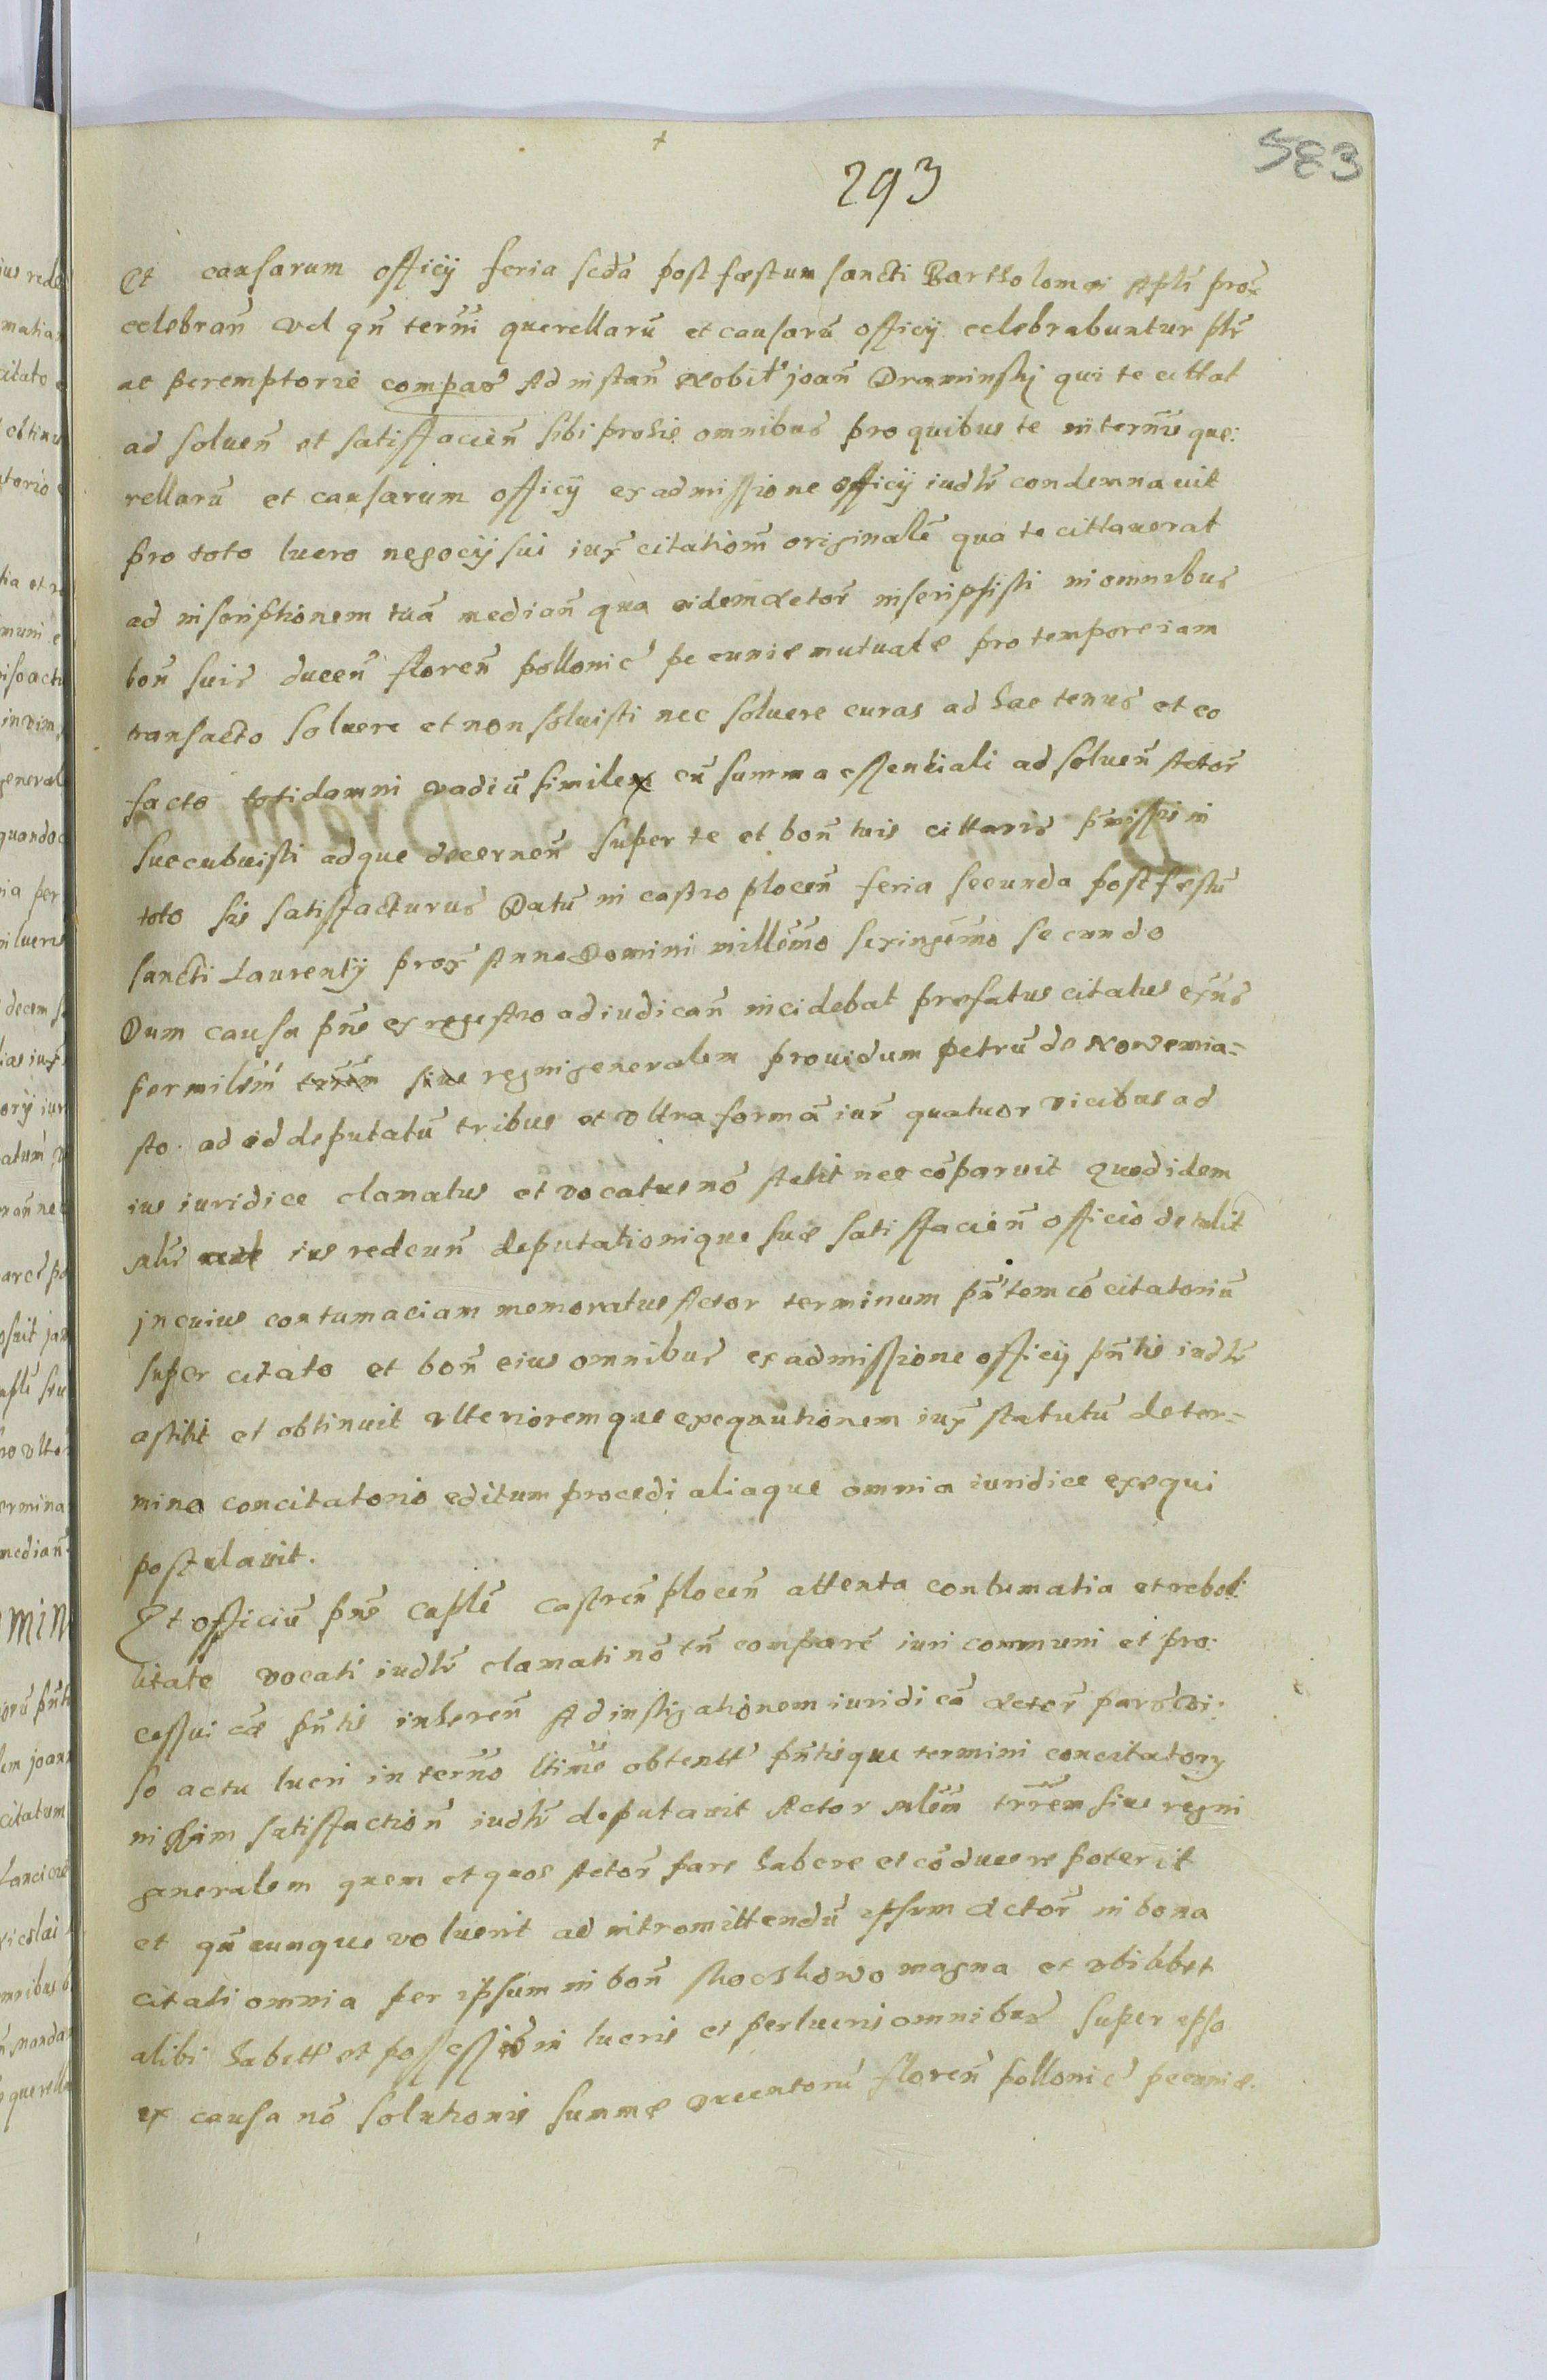 583
293
Et causarum officij feria scda post fæstum sancti Bartholomæi Apli prox
celebran̄ vel qn̄ term̄i querellarū et causarū officij celebrabuntur plr̄
ac peremptorie compas Ad instan̄ Nobil' joan̄ Draminskj qui te cittat
ad soluen̄ et satisfacien̄ sibi prohis omnibus pro quibus te in termīs que:
rellarū et causarum officij ex admissione officij iudlr̄ condemnauit
pro toto lucro negocij sui iux citationm̄ originalē qua te cittauerat
ad inscriptionem tuā median̄ qua eidem actor̄ inscripsisti in omnibus
bon̄ suis ducen̄ floren̄ pollonic' pecuniæ mutuatæ pro tempore iam
transacto soluere et non soluisti nec soluere curas ad hac tenus et eo
facto toti damni vadiū simile cū summa essentiali ad soluen̄ Actor̄
succubuisti adque decernen̄ super te et bon̄ tuis cittaris pr̄missis in
toto sis satisfacturus Datū in castro plocen̄ feria secunda post fæstū
sancti Laurentij prox Anno Domini millēmo sexingēmo secundo
Dum causa pn̄s ex regestro ad iudican̄ incidebat præfatus citatus exn̄s
per milēm regni generalem prouidum petrū de Nowemia=
sto ad id deputatū tribus et vltra formā iur̄ quatuor vicibus ad
ius iuridice clamatus et vocatus nō stetit nec cōparuit quod idem
mlis ius redeun̄ deputationique suæ satisfacien̄ officio detulit
jn cuius contumaciam memoratus Actor terminum pn̄tem cōcitatoriū
super citato et bon̄ eius omnibus ex admissione officij pn̄tis iudlr̄
astitit et obtinuit vlterioremque exequutionem iux statutū de ter=
mino concitatorio editum procedi aliaque omnia iuridice exequi
postulauit.
Et officiū pn̄s caplē castren̄ plocen̄ attenta contumatia et rebel:
litate vocati iudlr̄ clamati nō tn̄ comparē iuri communi et pro:
cessui cæ pn̄tis inheren̄ Ad instigationem iuridicā actor̄
so actu lucri in termīo obtent' pn̄tisque termini concitatorij
satisfaction̄ iudlr̄ deputauit Actor mlēm trrēm siue regni
generalem quem et quos Actor̄ pars habere et cōducere poterit
et qn̄ cunque voluerit ad intromittendū ipsum actor̄ in bona
citati omnia per ipsum in bon̄ magna et vbilibet
alibi habitt' et in lucris et perlucris omnibus super ipso
ex causa nō solutionis summæ ducentorū floren̄ pollonic' pecuniæ